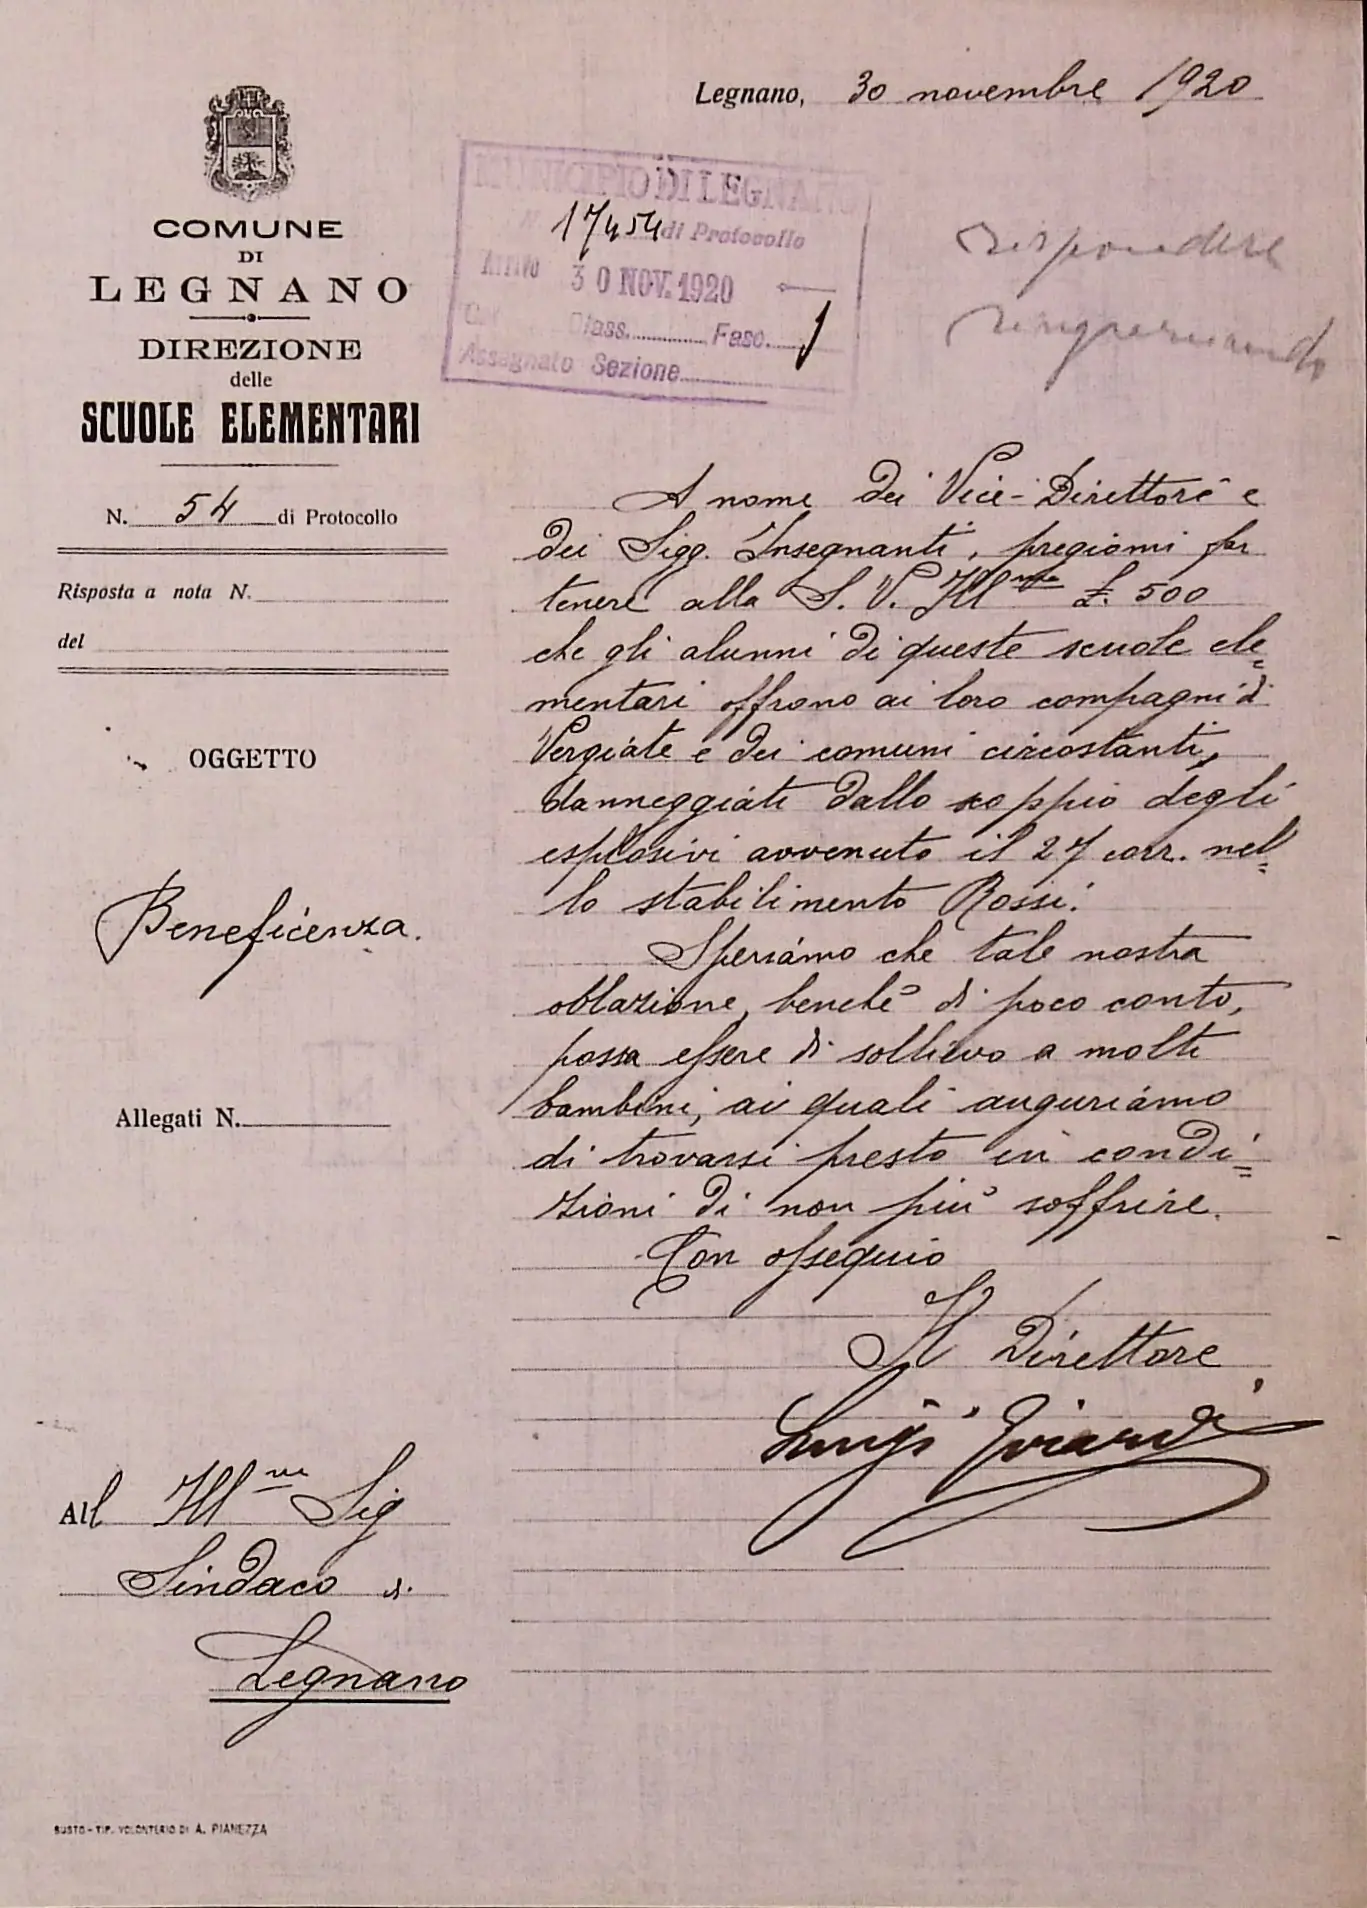 Legnano, 30 novembre 1920
COMUNE
DI
LEGNANO
DIREZIONE
delle
SCUOLE ELEMENTARI
N. 54 di Protocollo
Risposta a nota N.
del
OGGETTO
Beneficenza.
Allegati N.
MUNICIPIO DI LEGNANO
N. 17454 di Protocollo
Arrivo 30 NOV. 1920
Class. Fasc. 1
Assegnato Sezione
rispondere
ringraziando
A nome dei Vice-Direttore e
dei Sigg. Insegnanti, pregiomi far
tenere alla S. V. Ill.ma £. 500
che gli alunni di queste scuole ele=
mentari offrono ai loro compagni di
Vergiate e dei comuni circostanti,
danneggiati dallo scoppio degli
esplosivi avvenuto il 27 corr. nel=
lo stabilimento Rossi.
Speriamo che tale nostra
oblazione, benchè di poco conto,
possa essere di sollievo a molti
bambini, ai quali auguriamo
di trovarsi presto in condi=
zioni di non più soffrire.
Con ossequio
Il Direttore
Luigi
All Ill.mo Sig
Sindaco di
Legnano
BUSTO - TIP. VOLONTERIO DI A. PIANEZZA